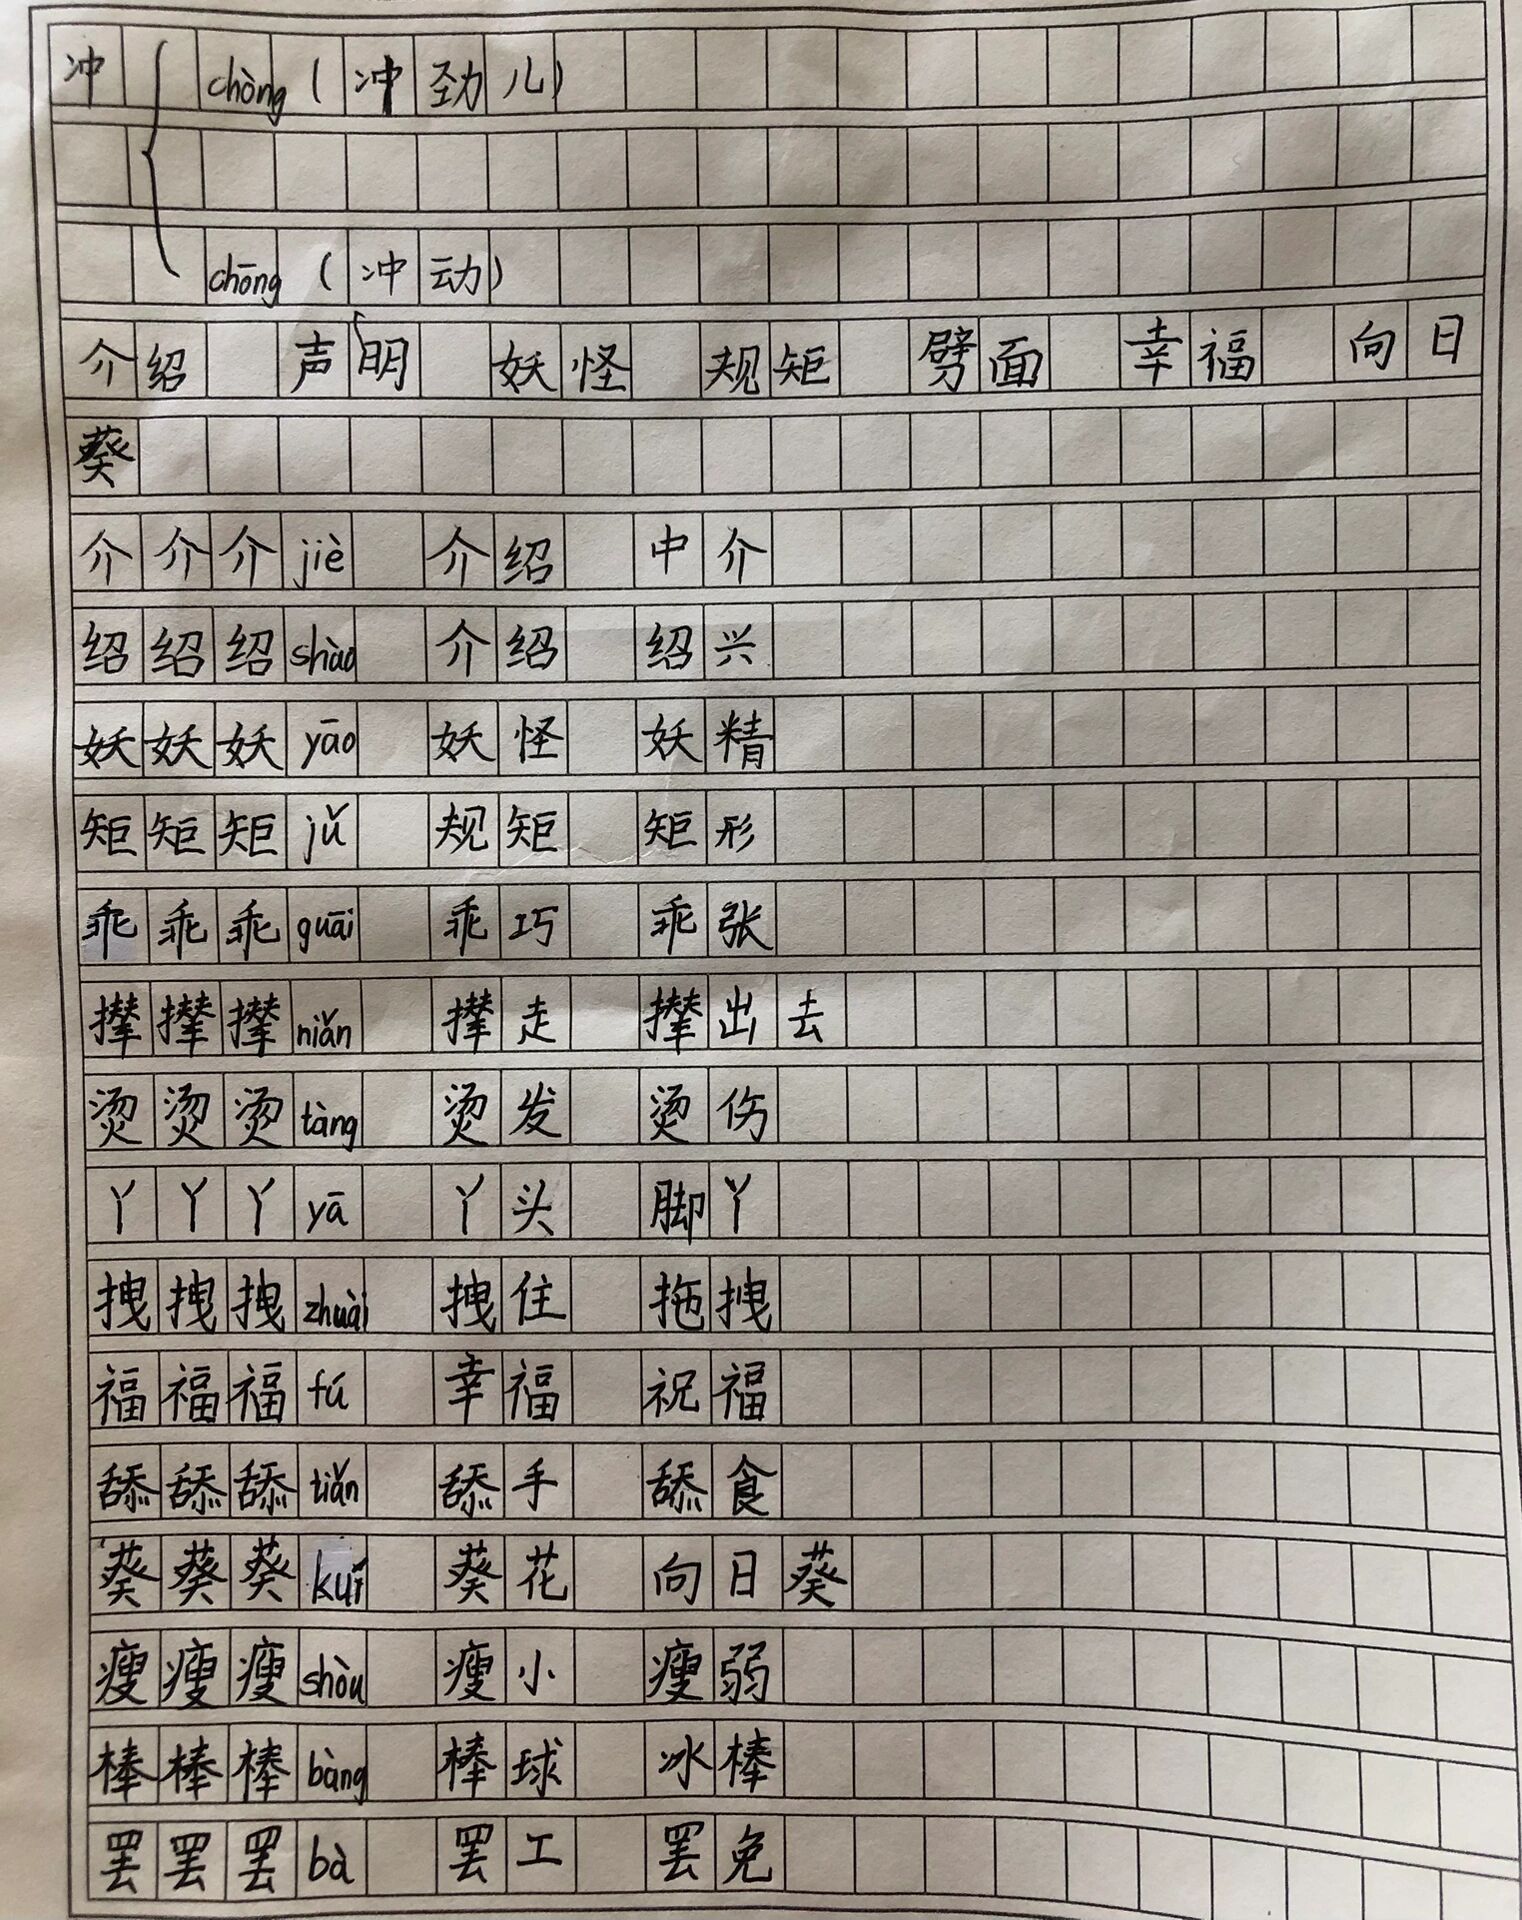 冲 chòng（冲劲儿）
chōng（冲动）
介绍 声明 妖怪 规矩 劈面 幸福 向日
葵
介介介 jiè 介绍 中介
绍绍绍 shào 介绍 绍兴
妖妖妖 yāo 妖怪 妖精
矩矩矩 jǔ 规矩 矩形
乖乖乖 guāi 乖巧 乖张
撵撵撵 niǎn 撵走 撵出去
烫烫烫 tàng 烫发 烫伤
丫丫丫 yā 丫头 脚丫
拽拽拽 zhuài 拽住 拖拽
福福福 fú 幸福 祝福
舔舔舔 tiǎn 舔手 舔食
葵葵葵 kuí 葵花 向日葵
瘦瘦瘦 shòu 瘦小 瘦弱
棒棒棒 bàng 棒球 冰棒
罢罢罢 bà 罢工 罢免